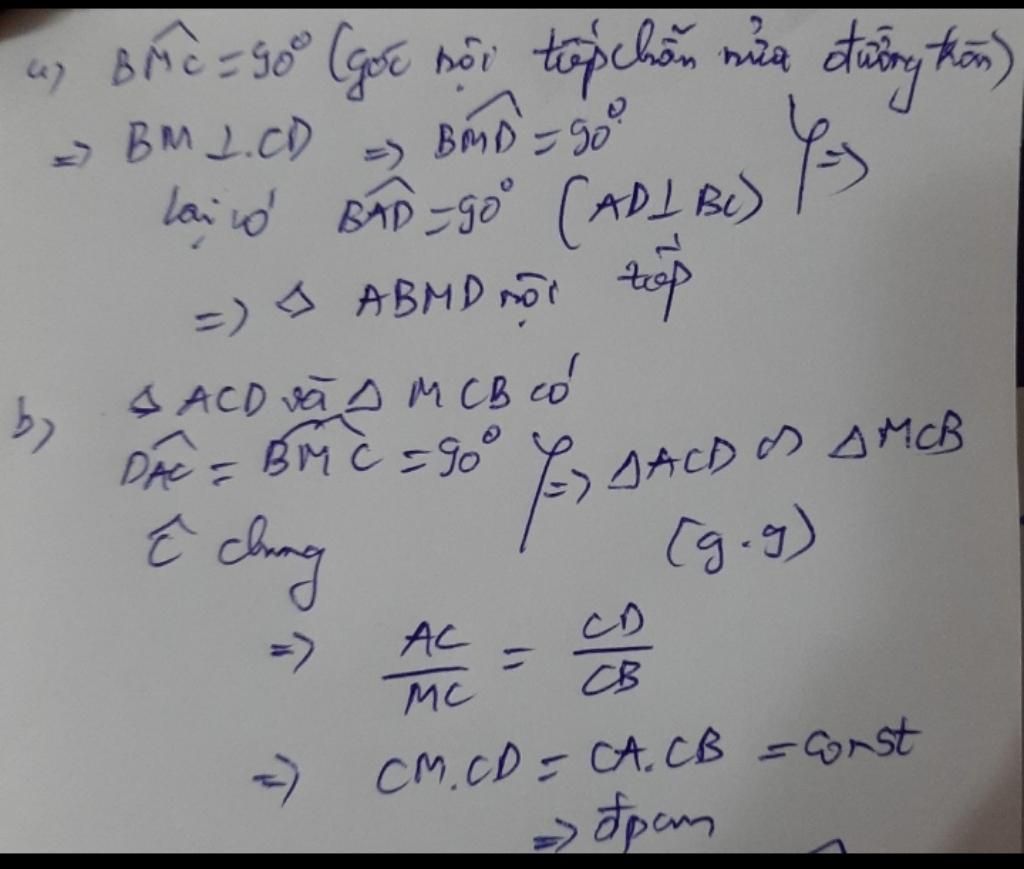 a) BM̂C = 90° (góc nội tiếp chắn nửa đường tròn)
=> BM ⊥ CD => BM̂D = 90°
lại có BÂD = 90° (AD ⊥ BC) } =>
=> ◇ ABMD nội tiếp
b) Δ ACD và Δ MCB có
DÂC = BM̂C = 90°
Ĉ chung } => ΔACD ∽ ΔMCB
(g.g)
=> AC/MC = CD/CB
=> CM.CD = CA.CB = const
=> đpcm